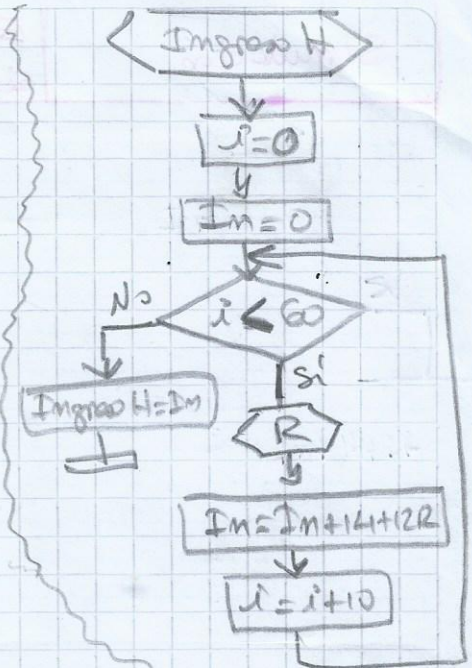 Ingreso H
i=0
In=0
i < 60
No
Si
Ingreso H=In
R
In=In+14+12R
i=i+10